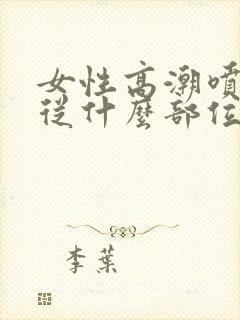 女性高潮噴
從什麼部位
李葉